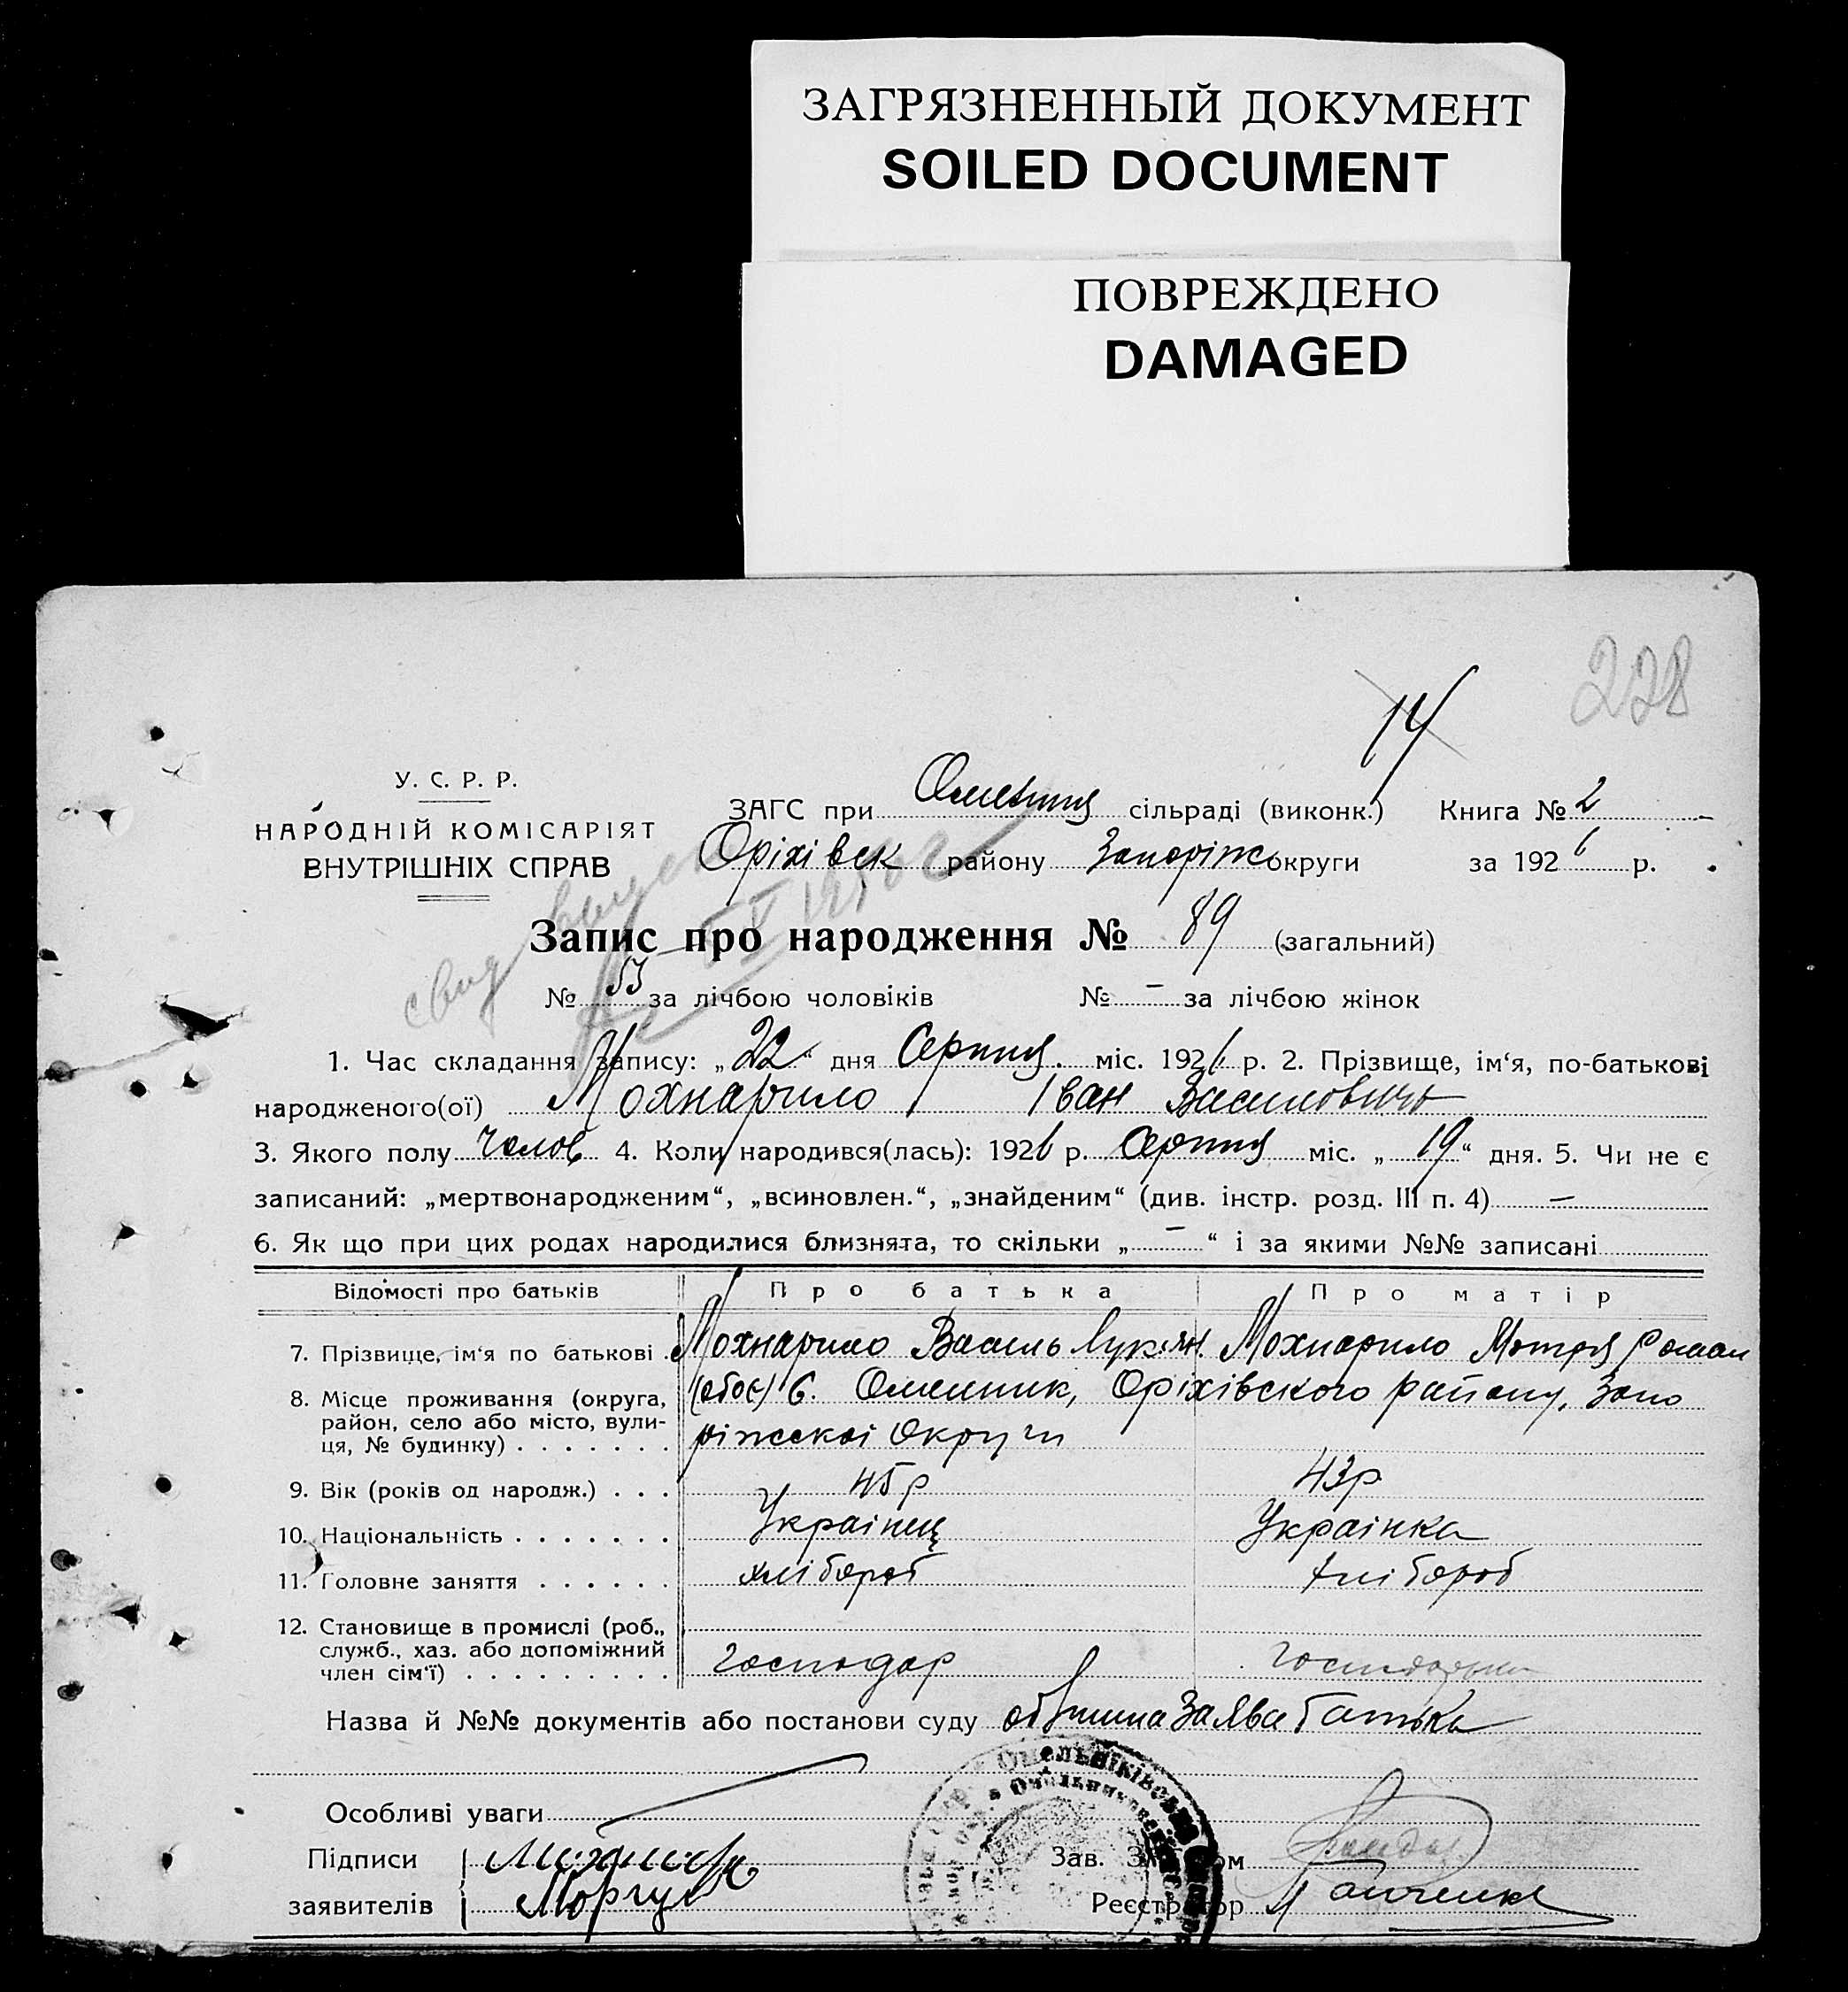 ЗАГРЯЗНЕННЫЙ ДОКУМЕНТ
SOILED DOCUMENT
ПОВРЕЖДЕНО
DAMAGED
228
14
У. С. Р. Р.
НАРОДНІЙ КОМІСАРІЯТ
ВНУТРІШНІХ СПРАВ
ЗАГС при сільраді (виконк.) Книга № 2
Оріхівск району Запоріж округи за 1926 р.
Запис про народження № 89 (загальний)
№ 53 за лічбою чоловіків № – за лічбою жінок
1. Час складання запису: „22“ дня Серпня міс. 1926 р. 2. Прізвище, ім'я, по-батькові
народженого(ої) Мохнарило Іван Васильовичь
3. Якого полу Чолов 4. Коли народився(лась): 1926 р. Серпня міс. „19“ дня. 5. Чи не є
записаний: „мертвонародженим“, „всиновлен.“, „знайденим“ (див. інстр. розд. III п. 4) –
6. Як що при цих родах народилися близнята, то скільки „–“ і за якими №№ записані
Відомості про батьків Про батька Про матір
7. Прізвище, ім'я по батькові Мохнарило Василь Лукян. Мохнарило Мотря Роман
8. Місце проживання (округа, район, село або місто, вулиця, № будинку) (обоє) с. Омельник, Оріхівского району, Запо
ріжскої Округи
9. Вік (років од народж.) 45 р 43 р
10. Національність Українец Українка
11. Головне заняття хлібороб хлібороб
12. Становище в промислі (роб., служб., хаз. або допоміжний член сім'ї) господар
Назва й №№ документів або постанови суду Заява батька
Особливі уваги
Підписи
заявителів Моргул
Зав. Загсом
Реєстратор